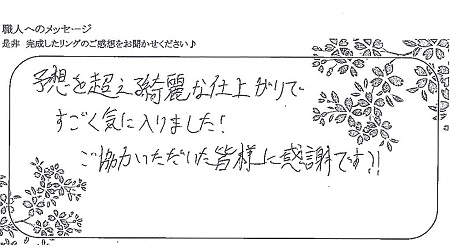 職人へのメッセージ
是非 完成したリングのご感想をお聞かせください♪
予想を超える綺麗な仕上がりで
すごく気に入りました!
ご協力いただいた皆様に感謝です!!